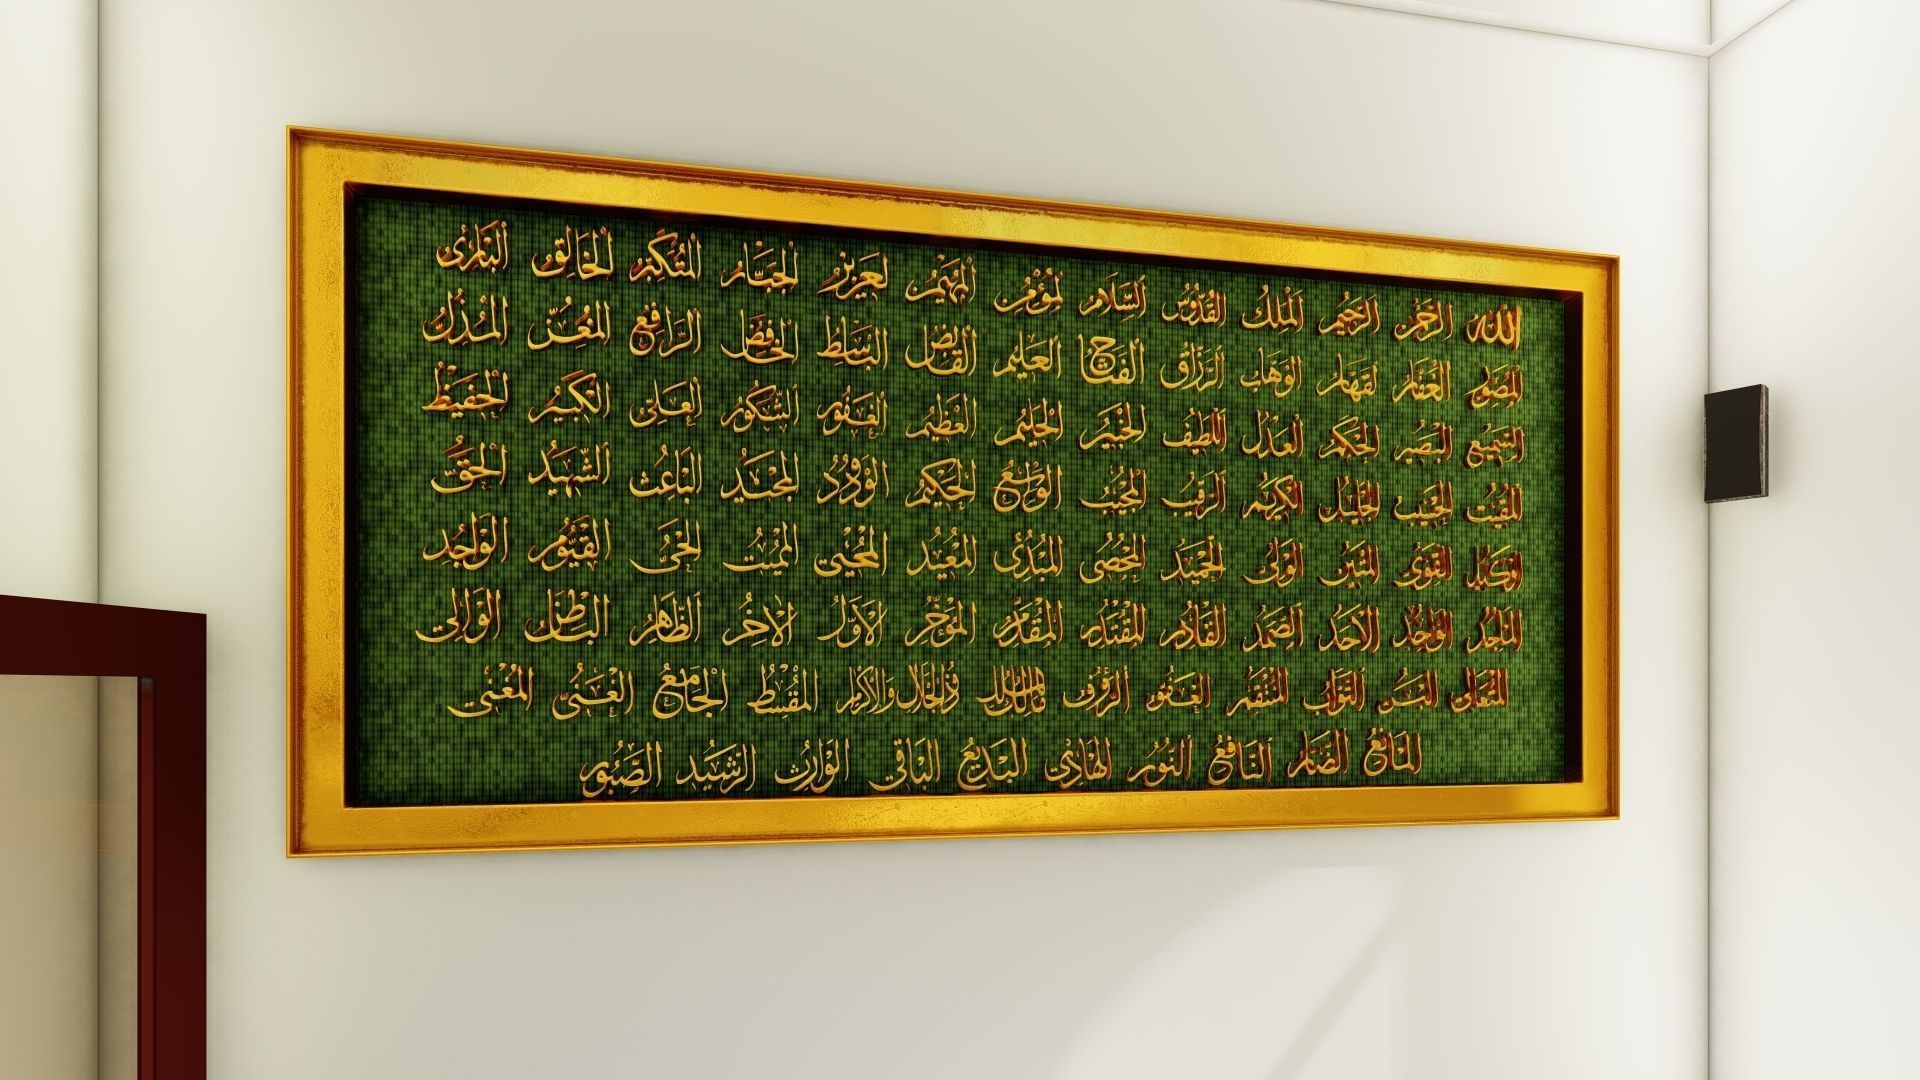 الله الرحمن الرحيم الملك القدوس السلام لمؤمن المهيمن لعزيز الجبار المتكبر الخالق البارئ
المصور الغفار لقهار الوهاب الرزاق الفتاح العليم القابض الباسط الخافض الرافع المعز المذل
السميع البصير الحكم العدل اللطيف الخبير الحليم العظيم الغفور الشكور العلى الكبير الحفيظ
المقيت الحسيب الجليل الكريم الرقيب المجيب الواسع الحكيم الودود المجيد الباعث الشهيد الحق
الوكيل القوى المتين الولى الحميد المحصى المبدئ المعيد المحيى المميت الحى القيوم الواجد
الماجد الواحد الاحد الصمد القادر المقتدر المقدم المؤخر الاول الاخر الظاهر الباطن الوالى
المتعالى البر التواب المنتقم العفو الرؤف مالك الملك ذو الجلال والاكرام المقسط الجامع الغنى المغنى
المانع الضار النافع النور الهادى البديع الباقى الوارث الرشيد الصبور